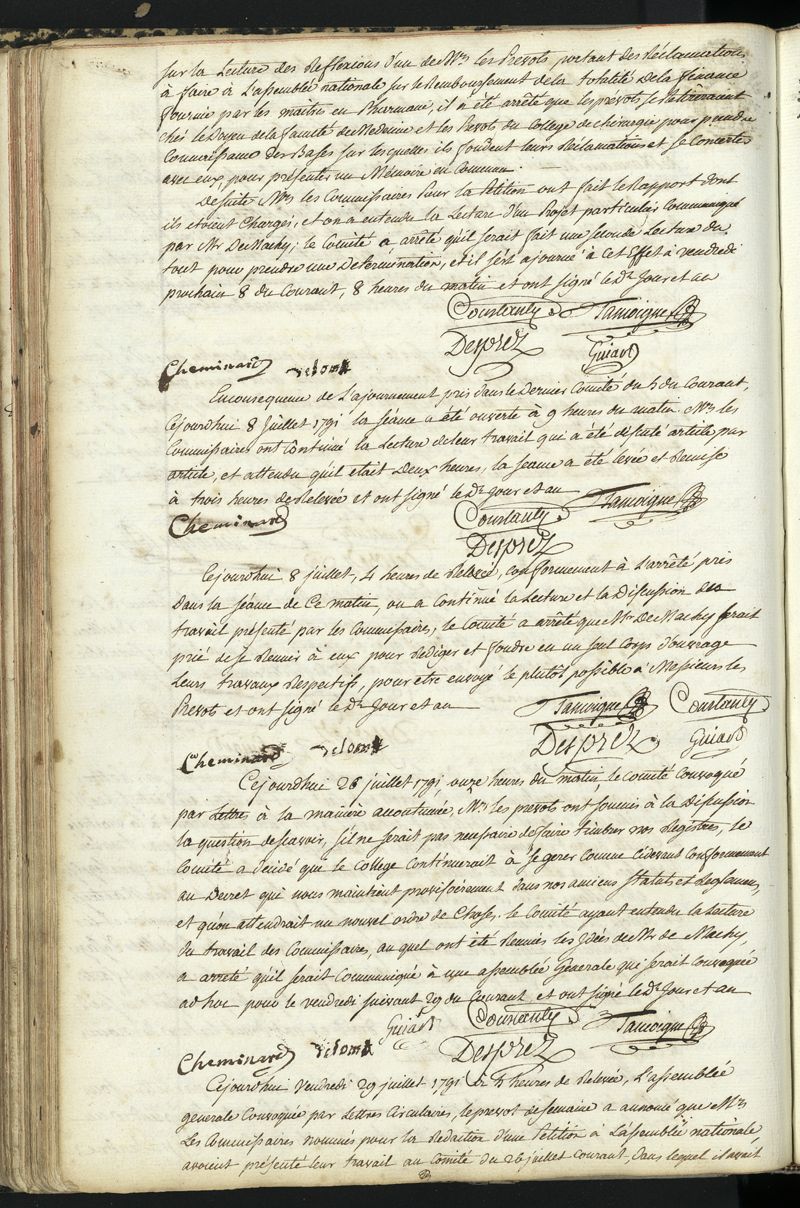 sur la Lecture des Reflexions d'un de Mrs les Prevots, portant des Réclamations
à faire à L'assemblée nationale sur le Remboursement de la totalité de la finance
fournie par les maitres en Pharmacie, il n été arrêté que les prévots se Retireraient
chés le Doyen de la faculté de Médecine et les Prevots du College de chirurgie pour prendre
Connoissance des Bases sur lesquelles ils fondent leurs Réclamations et se Concerter
avec eux, pour présenter un Mémoire en Commun.
De suite Mrs les Commissaires Pour la Pétition ont fait le Rapport dont
ils étoient Chargés, et on a entendu la Lecture d'un Projet particulier Communiqué
par Mr De Machy; le Comité a arrêté qu'il serait fait une seconde Lecture du
tout pour prendre une Determination, et il s'est ajourné à Cet Effet à vendredi
prochain 8 du Courant, 8 heures du matin et ont signé led. Jour et an
Coustauly Tamoigne
Desprez Guiard
Cheminard
En consequence de L'ajournement pris dans le Dernier Comité du 5 du Courant,
Cejourdhui 8 Juillet 1791 la séance a été ouverte à 9 heures du matin. Mrs les
Commissaires ont Continué la Lecture de leur travail qui a été discuté article par
article, et attendu qu'il etait Deux heures, la seance a été levée et Remise
à trois heures de Relevée et ont signé led. Jour et an Tamoigne
Cheminard Coustauly
Desprez
Cejourdhui 8 juillet, 4 heures de Relevée, conformement à L'arrêté pris
Dans la séance de Ce matin, on a Continué la Lecture et la Discussion du
travail présenté par les Commissaires; le Comité a arrêté que Mr De Machy serait
prié de se Reunir à eux pour Rediger et fondre en un seul Corps d'ouvrage
Leurs travaux Respectifs, pour être envoyé le plutot possible à Messieurs les
Prevots et ont signé led. Jour et an Tamoigne Coustauly
Cheminard Desprez Guiard
Cejourdhui 26 juillet 1791, onze heures du matin, le Comité Convoqué
par Lettres à la maniére accoutumée, Mrs les prevots ont soumis à la Discussion
la question de scavoir, s'il ne serait pas necessaire de faire timbrer nos Registres, le
Comité a décidé que le College Continuerait à se gerer Comme cidevant Conformement
au Decret qui nous maintient provisoirement dans nos anciens statuts et Reglemens,
et qu'on attendrait un nouvel ordre de Choses. le Comité ayant entendu la Lecture
du travail des Commissaires, au quel ont été Reunies les Idées de Mr de Machy
a arreté qu'il serait Communiqué à une assemblée Generale qui serait Convoquée
ad hoc pour le vendredi suivant 29 du Courant et ont signé led. Jour et an
Guiard Coustauly Tamoigne
Cheminard Desprez
Cejourdhui Vendredi 29 juillet 1791 heures de Relevée, L'assemblée
generale Convoquée par Lettres Circulaires, le prevot de semaine a annoncé que Mrs
Les Commissaires nommés pour la Redaction d'une Pétition à L'assemblée nationale
avoient présenté leur travail au Comité du 26 juillet courant, Dans lequel il avait